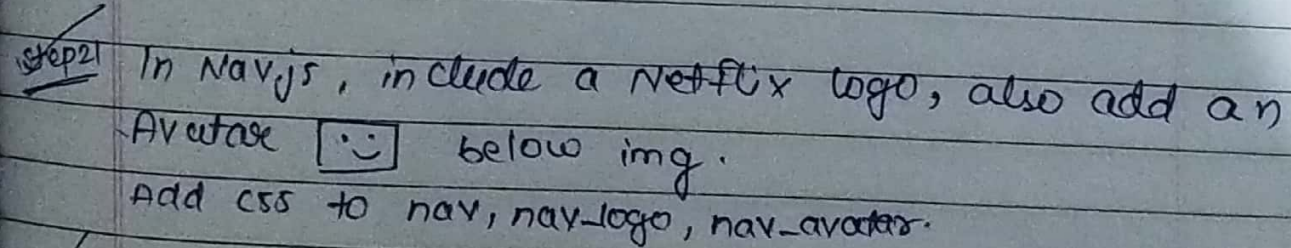 Step 21 In Nav.js, include a Netflix logo, also add an
Avatar below img.
Add css to nav, nav-logo, nav-avatar.